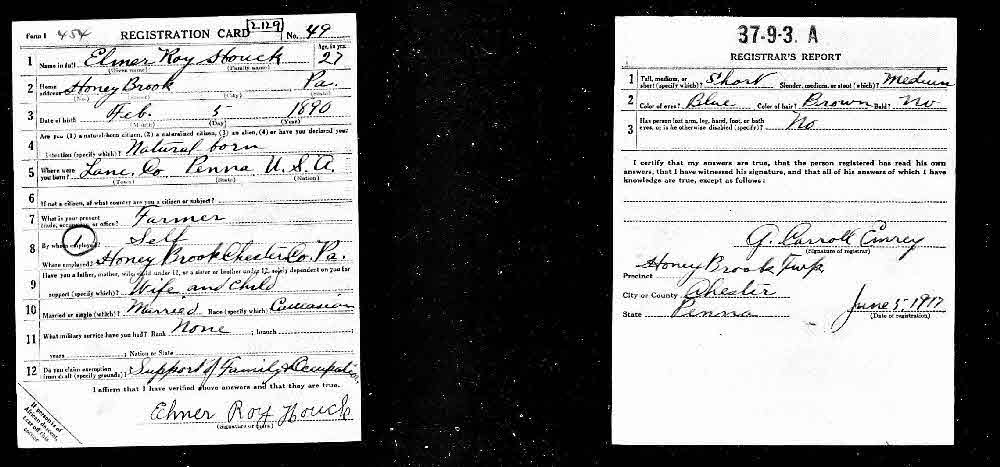 Form 1 454 REGISTRATION CARD 2129 No. 49
1 Name in full Elmer Roy Houck Age, in yrs. 27
(Given name) (Family name)
2 Home address Honey Brook Pa.
(No.) (City) (State)
3 Date of birth Feb. 5 1890
(Month) (Day) (Year)
Are you (1) a natural-born citizen, (2) a naturalized citizen, (3) an alien, (4) or have you declared your
4 intention (specify which)? Natural born
5 Where were you born? Lanc. Co Penna U.S.A.
(Town) (State) (Nation)
6 If not a citizen, of what country are you a citizen or subject?
7 What is your present trade, occupation, or office? Farmer
8 By whom employed? Self
1
Where employed? Honey Brook Chester Co. Pa.
Have you a father, mother, wife, child under 12, or a sister or brother under 12, solely dependent on you for
9 support (specify which)? Wife and child
10 Married or single (which)? Married Race (specify which)? Caucasian
11 What military service have you had? Rank None ; branch
years ; Nation or State
12 Do you claim exemption from draft (specify grounds)? Support of Family & Occupation
I affirm that I have verified above answers and that they are true.
Elmer Roy Houck
(Signature or mark)
If person is of African descent, tear off this corner
37-9-3. A
REGISTRAR'S REPORT
1 Tall, medium, or short (specify which)? Short Slender, medium, or stout (which)? Medium
2 Color of eyes? Blue Color of hair? Brown Bald? No
3 Has person lost arm, leg, hand, foot, or both eyes, or is he otherwise disabled (specify)? No
I certify that my answers are true, that the person registered has read his own
answers, that I have witnessed his signature, and that all of his answers of which I have
knowledge are true, except as follows:
G. Carroll Emrey
(Signature of registrar)
Precinct Honey Brook Twp.
City or County Chester
State Penna
June 5, 1917
(Date of registration)